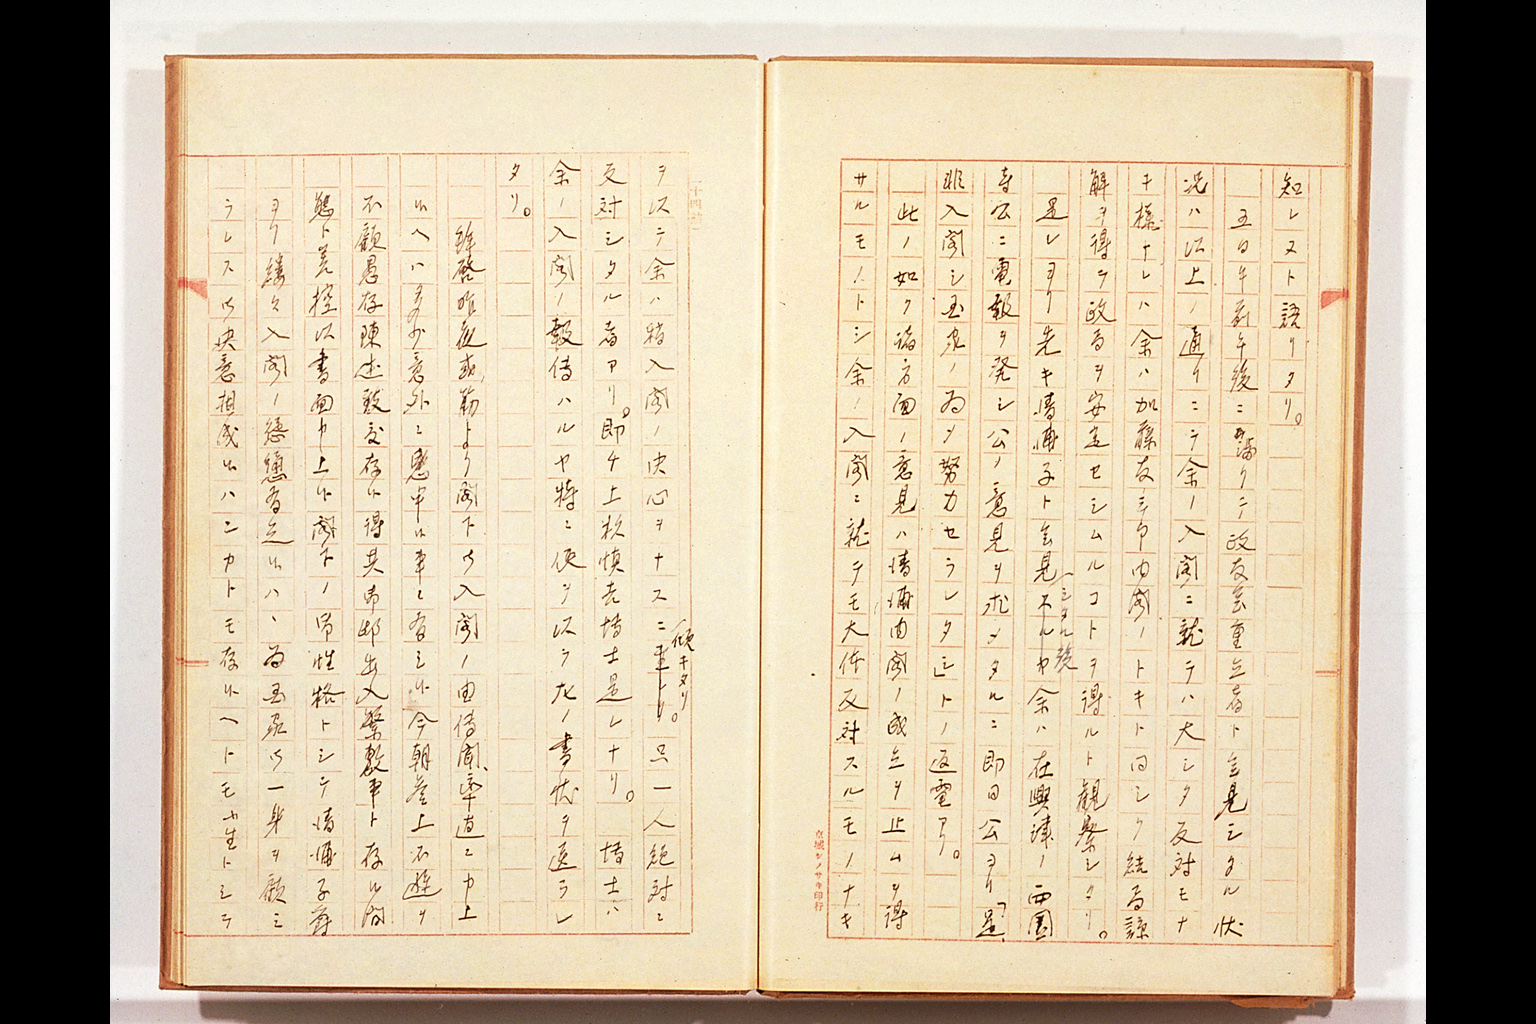 知レスト語リタリ。
五日午前午後ニ渉リテ政友会重立者ト会見シタル状
況ハ以上ノ通リニテ余ノ入閣ニ就テハ大シタ反対モナ
キ様ナレハ余ハ加藤友三郎内閣ノトキト同シク結局諒
解ヲ得テ政局ヲ安定セシムルコトヲ得ルト観察シタリ。
是レヨリ先キ清浦子ト会見シタル後余ハ在興津ノ西園
寺公ニ電報ヲ発シ公ノ意見ヲ求メタルニ即日公ヨリ「是
非入閣シ国家ノ為メ努力セラレタシ」トノ返電アリ。
此ノ如ク諸方面ノ意見ハ清浦内閣ノ成立ヲ止ムヲ得
サルモノトシ余ノ入閣ニ就テモ大体反対スルモノナキ
京城シノサキ印行
ヲ以テ余ハ稍入閣ノ決心ヲナスニ傾キタリ。只一人絶対ニ
反対シタル者アリ。即チ上杉慎吉博士是レナリ。博士ハ
余ノ入閣ノ報伝ハルヤ特ニ使ヲ以テ左ノ書状ヲ送ラレ
タリ。
拝啓昨夜或筋より閣下ノ入閣ノ由伝聞、率直ニ申上
候ヘハ多少意外ニ思申候事ニ有之候今朝参上不遜ヲ
不顧愚存陳述致度存候得共御邸出入繁敷事ト存候間
態ト差控以書面申上候閣下ノ御性格トシテ清浦子爵
ヨリ縷々入閣ノ慫慂有之候ハヽ為国家一身ヲ顧ミ
ラレス御決意相成候ハンカトモ存候ヘトモ小生トシテ